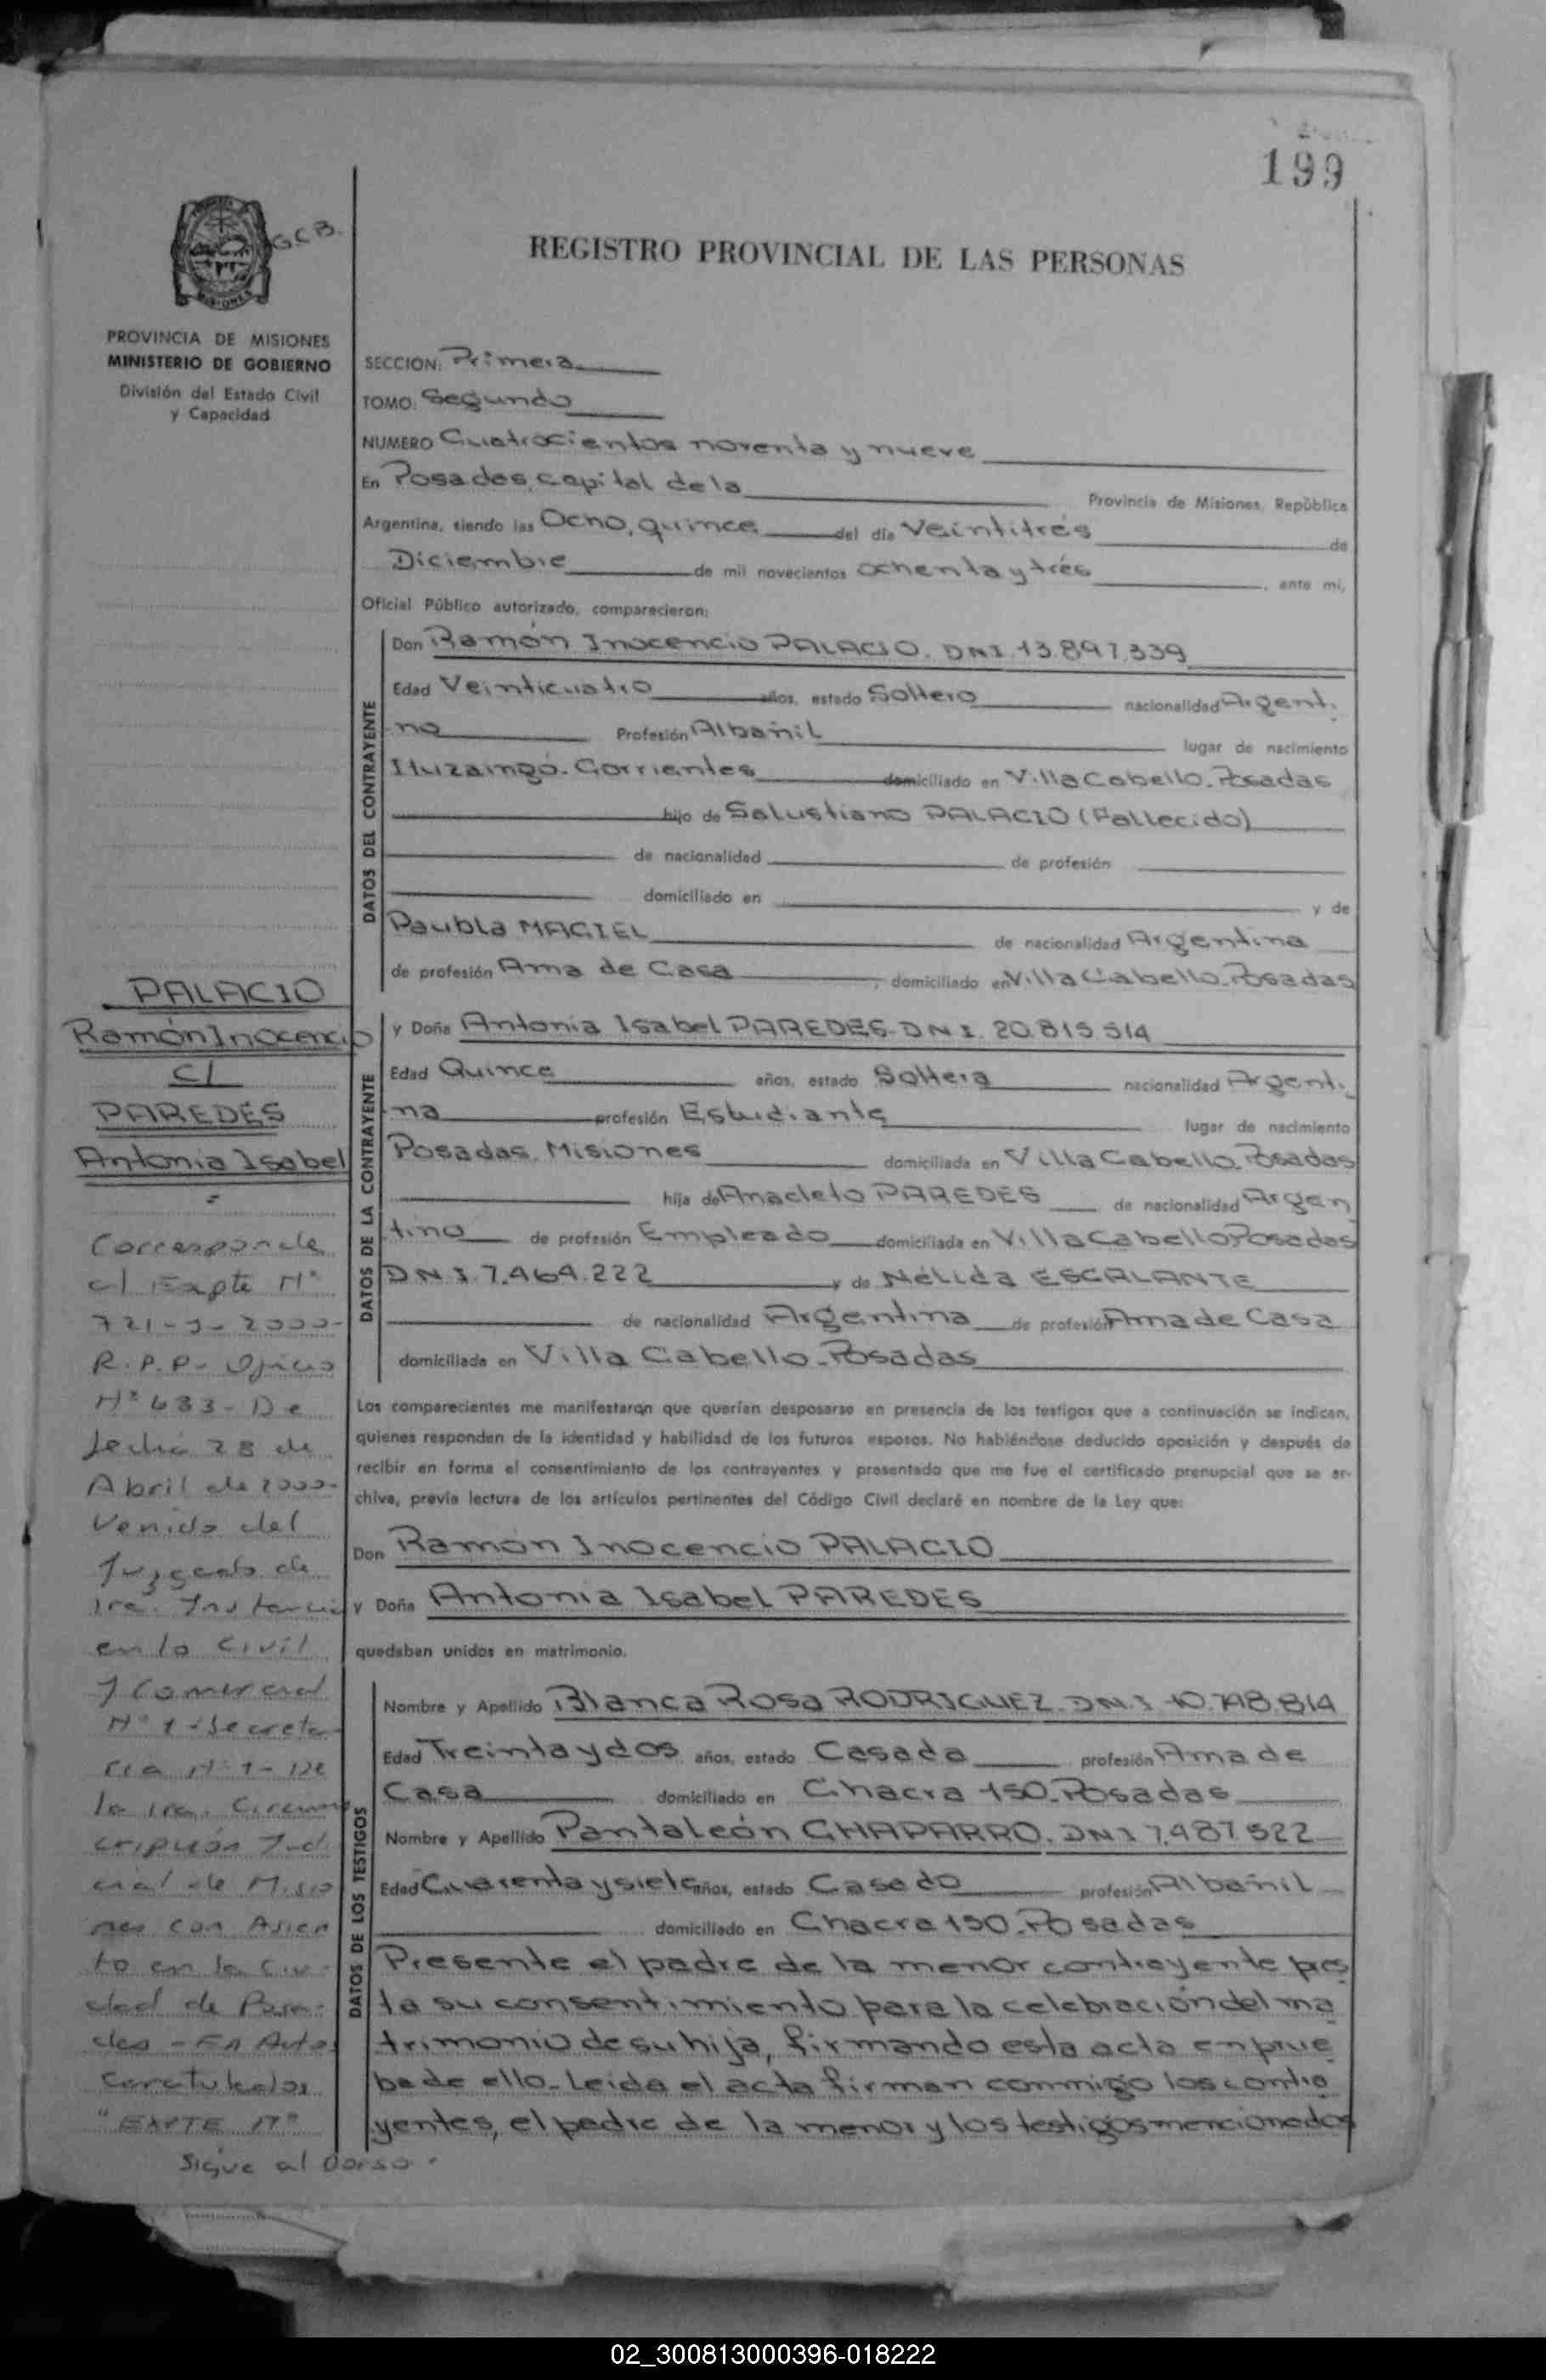 199
G.C.B.
MISIONES
PROVINCIA DE MISIONES
MINISTERIO DE GOBIERNO
División del Estado Civil
y Capacidad
REGISTRO PROVINCIAL DE LAS PERSONAS
SECCION: Primera
TOMO: Segundo
NUMERO Cuatrocientos noventa y nueve
En Posadas, capital de la Provincia de Misiones, República
Argentina, siendo las Ocho, quince del día Veintitrés de
Diciembre de mil novecientos ochenta y trés, ante mi,
Oficial Público autorizado, comparecieron:
DATOS DEL CONTRAYENTE
Don Ramón Inocencio PALACIO. DNI. 13.897.339
Edad Veinticuatro años, estado Soltero nacionalidad Argenti
no Profesión Albañil lugar de nacimiento
Ituzaingó. Corrientes domiciliado en Villa Cabello. Posadas
hijo de Salustiano PALACIO (Fallecido)
de nacionalidad de profesión
domiciliado en y de
Paubla MACIEL de nacionalidad Argentina
de profesión Ama de Casa, domiciliado en Villa Cabello. Posadas
DATOS DE LA CONTRAYENTE
y Doña Antonia Isabel PAREDES-DNI. 20.815.514
Edad Quince años, estado Soltera nacionalidad Argenti
na profesión Estudiante lugar de nacimiento
Posadas. Misiones domiciliada en Villa Cabello. Posadas
hija de Anacleto PAREDES de nacionalidad Argen
tino de profesión Empleado domiciliada en Villa Cabello Posadas
D.N.I. 7.464.222 y de Nélida ESCALANTE
de nacionalidad Argentina de profesión Ama de Casa
domiciliada en Villa Cabello. Posadas
Los comparecientes me manifestaron que querían desposarse en presencia de los testigos que a continuación se indican,
quienes responden de la identidad y habilidad de los futuros esposos. No habiéndose deducido oposición y después de
recibir en forma el consentimiento de los contrayentes y presentado que me fue el certificado prenupcial que se ar-
chiva, previa lectura de los artículos pertinentes del Código Civil declaré en nombre de la Ley que:
Don Ramón Inocencio PALACIO
y Doña Antonia Isabel PAREDES
quedaban unidos en matrimonio.
DATOS DE LOS TESTIGOS
Nombre y Apellido Blanca Rosa RODRIGUEZ. D.N.I 10.798.814
Edad Treinta y dos años, estado Casada profesión Ama de
Casa domiciliado en Chacra 150. Posadas
Nombre y Apellido Pantaleón CHAPARRO. DNI 7.487.522
Edad Cuarenta y siete años, estado Casado profesión Albañil
domiciliado en Chacra 150. Posadas
Presente el padre de la menor contrayente pres
ta su consentimiento para la celebración del ma
trimonio de su hija, firmando esta acta en prue
ba de ello. Leida el acta firman conmigo los contra
yentes, el padre de la menor y los testigos mencionados
PALACIO
Ramón Inocencio
C/
PAREDES
Antonia Isabel
Corresponde
al Expte Nº
721-J-2000-
R.P.P- Oficio
Nº 683- De
fecha 28 de
Abril de 2000-
Venido del
Juzgado de
1ra. Instancia
en lo Civil
y Comercial
Nº 1-Secreta
ria Nº 1- De
la 1ra. Circuns
cripción Judi
cial de Misio
nes con Asien
to en la Ciu-
dad de Posa-
das - En Autos
Caratulados
"EXPTE Nº
Sigue al Dorso.
02_300813000396-018222